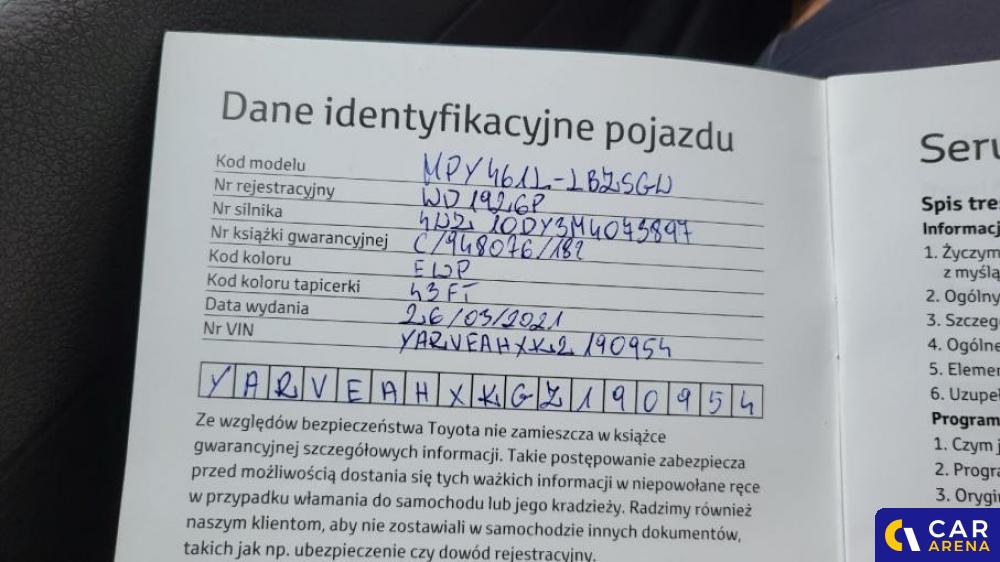 Dane identyfikacyjne pojazdu
Kod modelu MPY461L-LBZSGW
Nr rejestracyjny WD1926P
Nr silnika 4WZ 10DY3M4043897
Nr książki gwarancyjnej C/948076/182
Kod koloru EWP
Kod koloru tapicerki 43FT
Data wydania 26/03/2021
Nr VIN YARVEAHXKZ190954
YARVEAHXKGZ190954
Ze względów bezpieczeństwa Toyota nie zamieszcza w książce
gwarancyjnej szczegółowych informacji. Takie postępowanie zabezpiecza
przed możliwością dostania się tych ważkich informacji w niepowołane ręce
w przypadku włamania do samochodu lub jego kradzieży. Radzimy również
naszym klientom, aby nie zostawiali w samochodzie innych dokumentów,
takich jak np. ubezpieczenie czy dowód rejestracyjny.
Seru
Spis tre
Informacj
1. Życzym
z myślą
2. Ogólny
3. Szczeg
4. Ogólne
5. Elemen
6. Uzupeł
Program
1. Czym j
2. Progra
3. Orygin
CAR
ARENA